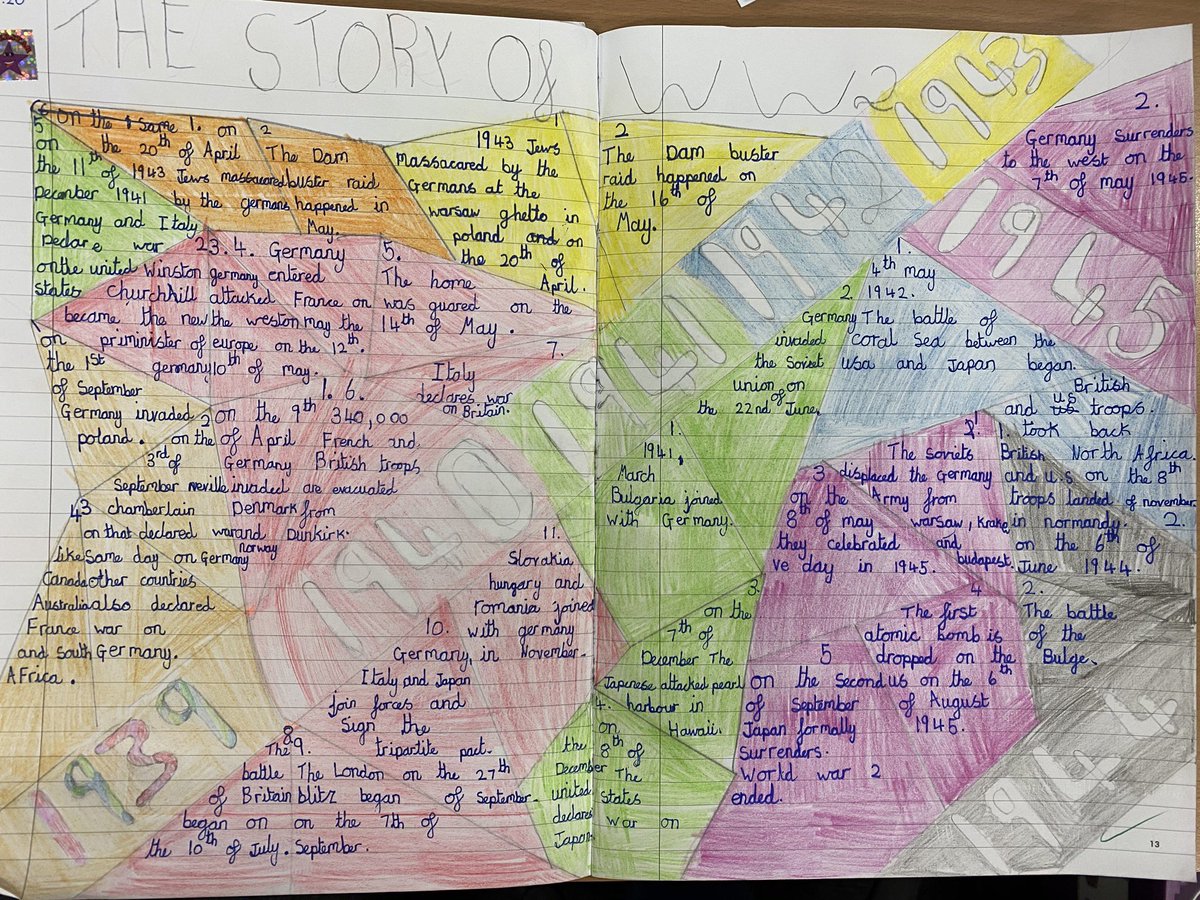 .20
THE STORY Of WW2
1939
1.
on
the 1st
of September
Germany invaded
poland.
2
on the
3rd of
September neville
chamberlain
declared war
on Germany
3
on that
same day
other countries
also declared
war on
Germany.
4
like
Canada
Australia
France
and south
AFrica.
1940
1.
on the 9th
of April
Germany
invaded
Denmark
and
norway
2
Winston
Churchill
became the new
priminister
3.
germany
attacked
the west
of europe
on the
10th of may.
4. Germany
entered
France on
may the
12th.
5.
The home
guared
was on the
14th of May.
6.
340,000
French and
British troops
are evacuated
from
Dunkirk.
7.
Italy
declares war
on Britain.
8.
The
battle
of Britain
began on
the 10th of July.
9.
The London
blitz began
on the 7th of
September.
10.
Germany,
Italy and Japan
join forces and
sign the
tripartite pact.
on the 27th
of September.
11.
Slovakia
hungery and
romania joined
with germany
in November.
1941
1.
1941,
March
Bulgaria joined
with Germany.
2.
Germany
invaded
the Soviet
union on
the 22nd of June.
3.
on the
7th of
December The
Japenese attacked pearl
harbour in
Hawaii.
4.
on
the 8th of
December The
united States
declares war on
Japan
5
on
the 11th of
December 1941
Germany and Italy
Declare war
on the united
states
6 on the same
1. on
the 20th of April
1943 Jews massacared
by the germans
2
The Dam
buster raid
happened in
May.
1942
1.
4th may
1942.
The battle of
coral Sea between the
usa and Japan began.
2.
British
and us troops.
took back
North Africa.
on the 8th
of november
1943
1
1943 Jews
massacared by the
Germans at the
warsaw ghetto in
poland and on
the 20th of
April.
2
The Dam buster
raid happened on
the 16th of
May.
1944
1.
British
and u.s
troops landed
in normandy.
on the 6th of
June 1944.
2.
The battle
of the
Bulge.
1945
1.
The soviets
displaced the Germany
Army from
warsaw, krakow
and
budapest.
2.
Germany surrenders
to the west on the
7th of may 1945.
3
on the
8th of may
they celebrated
ve day in 1945.
4
The first
atomic bomb is
dropped on the
us on the 6th
of August
1945.
5
on the second
of September
Japan formally
surrenders.
World war 2
ended.
13